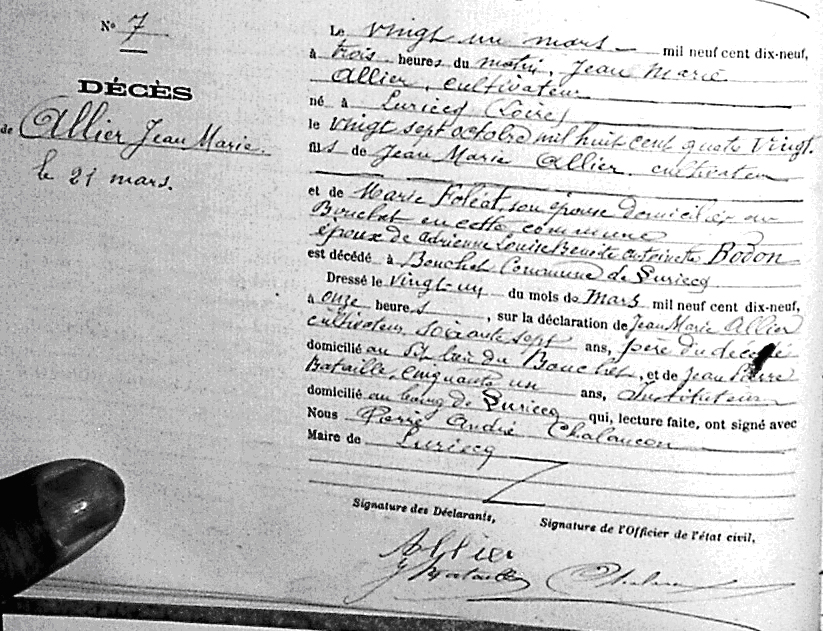 N° 7
DÉCÈS
de Allier Jean Marie
le 21 mars.
Le vingt un mars mil neuf cent dix-neuf,
à trois heures du matin, Jean Marie
Allier, cultivateur
né à Luriecq (Loire)
le vingt sept octobre mil huit cent quatre vingt.
fils de Jean Marie Allier cultivateur
et de Marie Foléat, son épouse domiciliés au
Bouchet en cette commune
époux de Adrienne Louise Benoite Antoinette Bodon
est décédé à Bouchet Commune de Luriecq
Dressé le vingt-un du mois de Mars mil neuf cent dix-neuf,
à onze heures, sur la déclaration de Jean Marie Allier
cultivateur soixante sept ans, père du décédé
domicilié au dit lieu du Bouchet, et de Jean Pierre
Bataille, cinquante un ans, Instituteur
domicilié au bourg de Luriecq qui, lecture faite, ont signé avec
Nous Pierre André Chalancon
Maire de Luriecq
Signature des Déclarants,
Signature de l'Officier de l'état civil,
Allier
J Bataille Chalancon